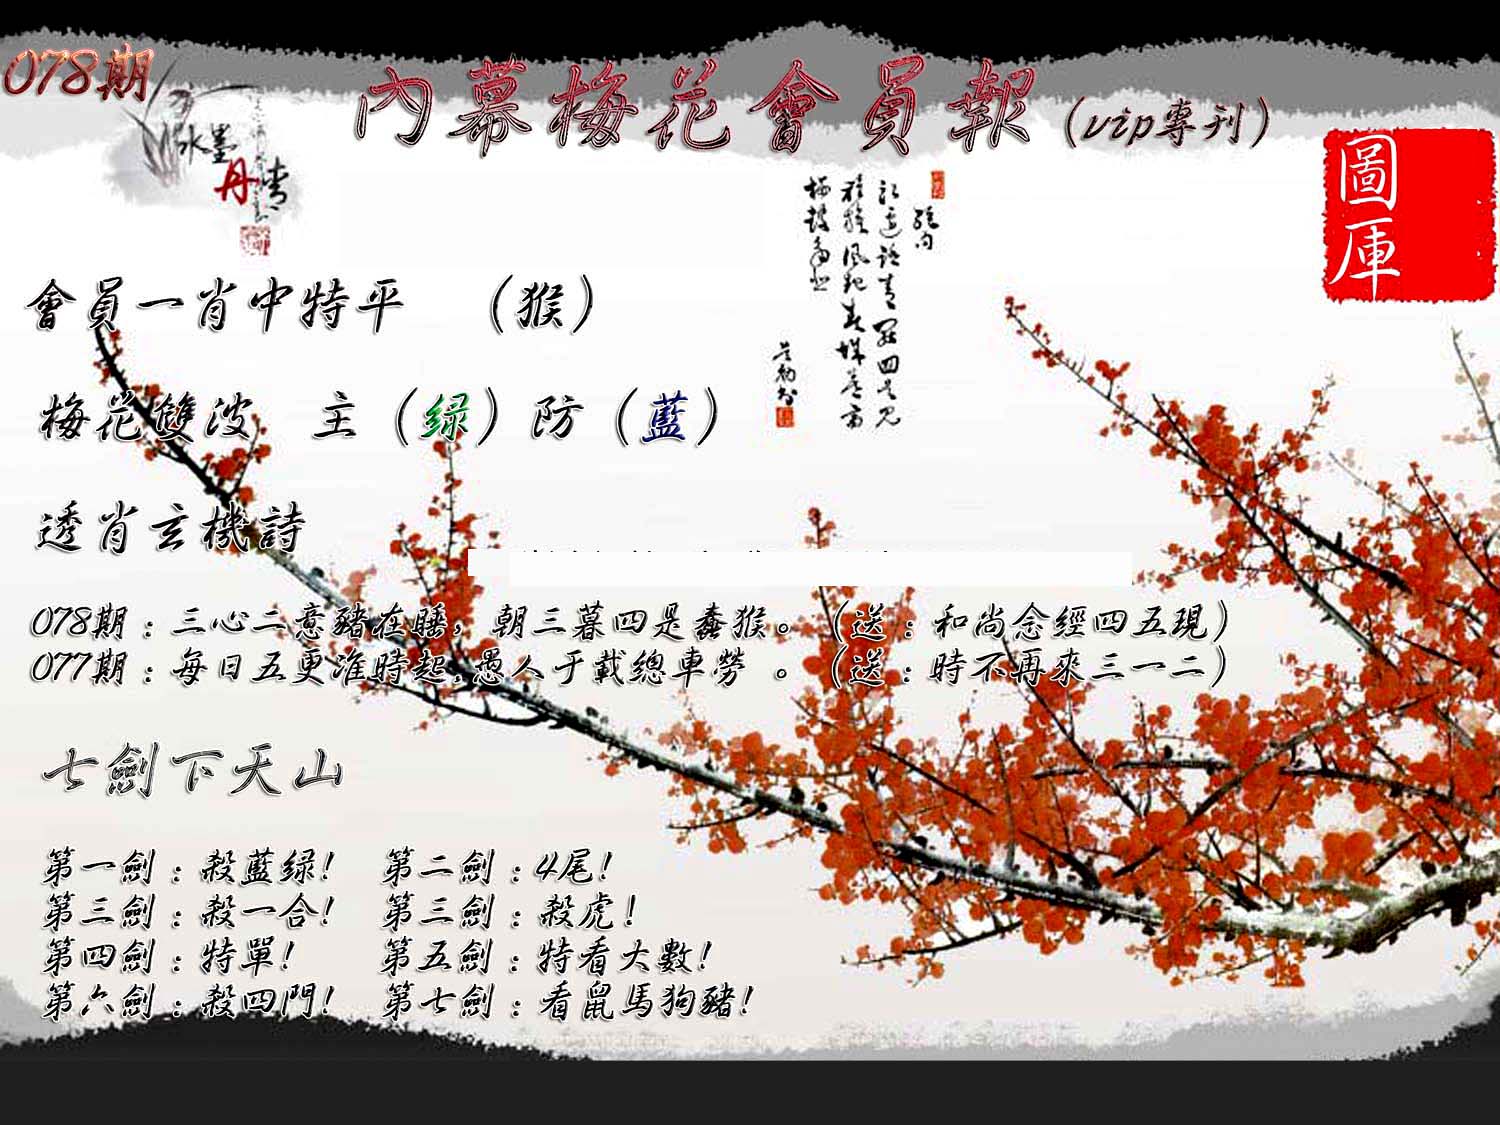 078期
內幕梅花會員報(vip專刊)
水墨
丹青
圖庫
會員一肖中特平 (猴)
梅花雙波 主(绿)防(藍)
透肖玄機詩
078期:三心二意豬在睡,朝三暮四是蠢猴。(送:和尚念經四五現)
077期:每日五更准時起,愚人于載總車勞 。(送:時不再來三一二)
七劍下天山
第一劍:殺藍绿! 第二劍:4尾!
第三劍:殺一合! 第三劍:殺虎!
第四劍:特單! 第五劍:特看大數!
第六劍:殺四門! 第七劍:看鼠馬狗豬!